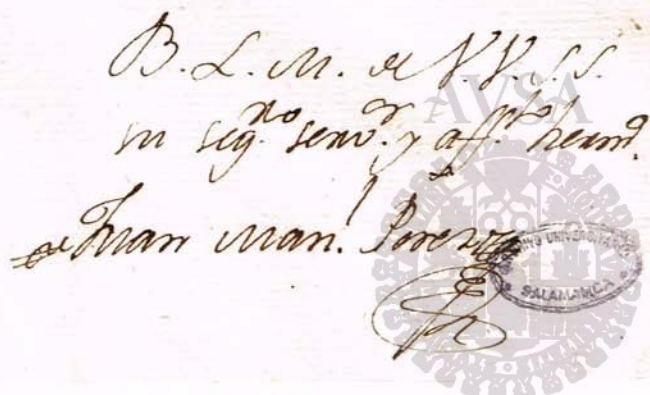 B. L. M. de VV. SS.
AVSA
su seg.ro serv.r y aff.to herm.o
Juan Man.l
ARCHIVO UNIVERSITARIO
SALAMANCA